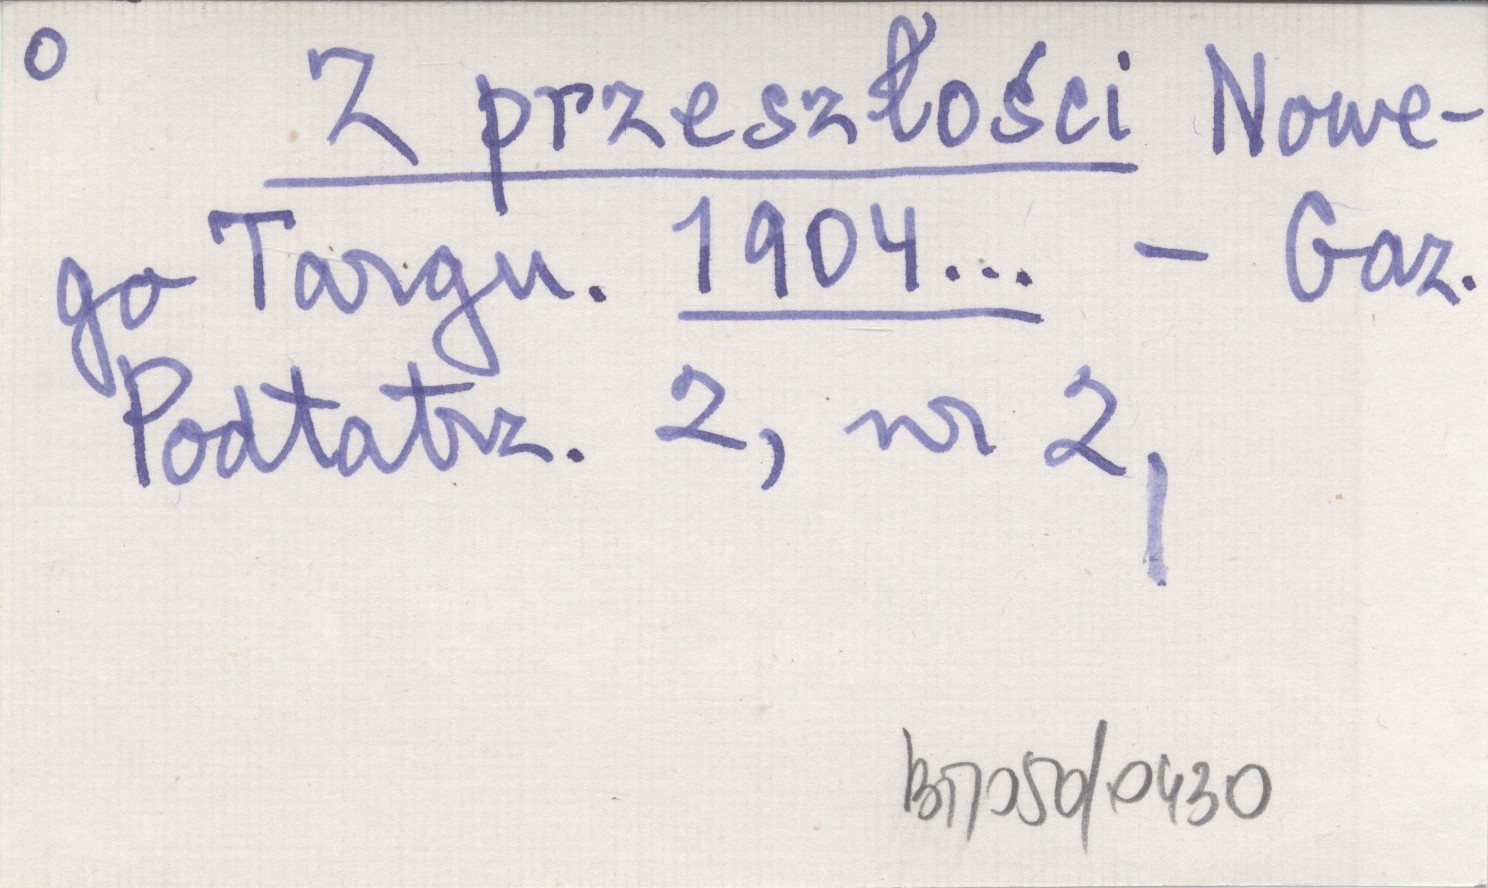 o Z przeszłości Nowe-
go Targu. 1904... - Gaz.
Podtatrz. 2, nr 2,